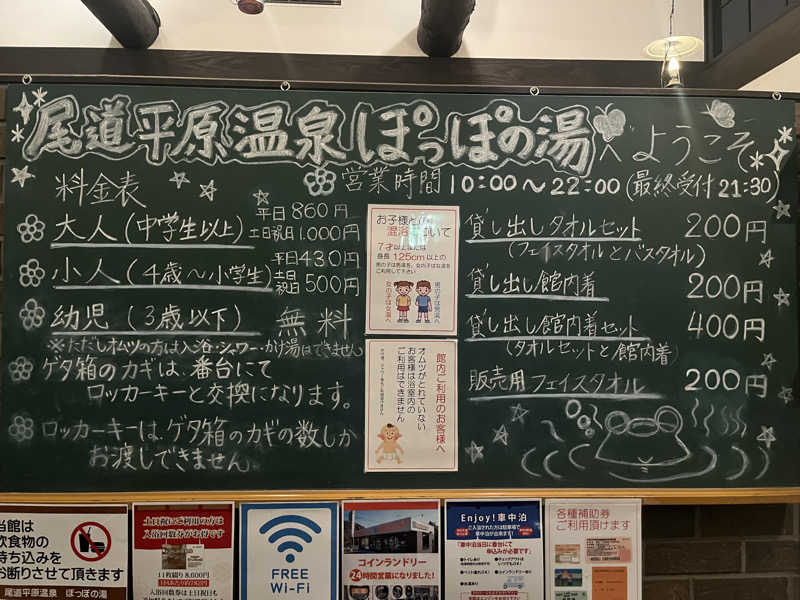 尾道平原温泉ぽっぽの湯へようこそ
料金表
営業時間 10:00〜22:00 (最終受付21:30)
大人(中学生以上) 平日 860円
土日祝日 1,000円
小人(4歳〜小学生) 平日 430円
土日祝日 500円
幼児(3歳以下) 無料
※ただしオムツの方は入浴・シャワー・かけ湯はできません
ゲタ箱のカギは、番台にて
ロッカーキーと交換になります。
ロッカーキーは、ゲタ箱のカギの数しか
お渡しできません
お子様との
混浴について
7才以上または
身長125cm以上の
男の子は男湯を、女の子は女湯を
ご利用して下さい
女の子は女湯へ
男の子は男湯へ
館内ご利用のお客様へ
オムツがとれていない
お客様は浴室内の
ご利用はできません
貸し出しタオルセット 200円
(フェイスタオルとバスタオル)
貸し出し館内着 200円
貸し出し館内着セット 400円
(タオルセットと館内着)
販売用フェイスタオル 200円
当館は
飲食物の
持ち込みを
お断りさせて頂きます
尾道平原温泉 ぽっぽの湯
土日祝にご利用の方は
入浴回数券がお得です
11枚綴り8,000円
入浴回数券は土日祝日も
FREE
Wi-Fi
コインランドリー
24時間営業になりました!
Enjoy!車中泊
各種補助券
ご利用頂けます